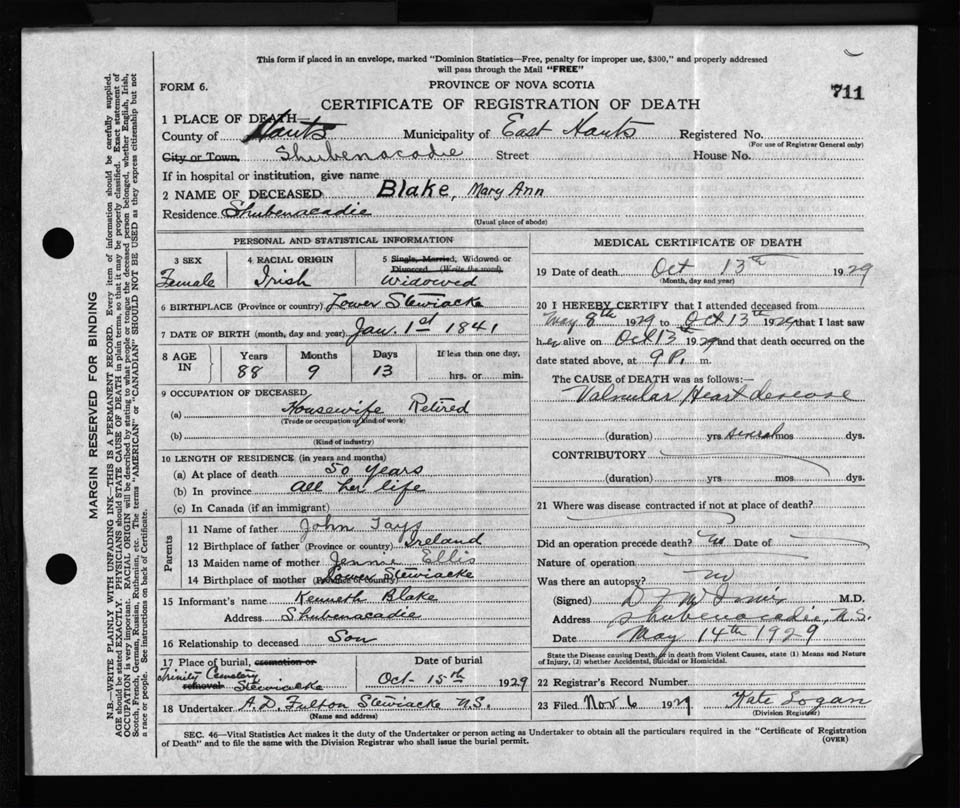 This form if placed in an envelope, marked "Dominion Statistics—Free, penalty for improper use, $300," and properly addressed
will pass through the Mail "FREE"
FORM 6.
PROVINCE OF NOVA SCOTIA
711
CERTIFICATE OF REGISTRATION OF DEATH
1 PLACE OF DEATH—
County of Hants Municipality of East Hants Registered No.
(For use of Registrar General only)
City or Town Shubenacadie Street House No.
If in hospital or institution, give name
2 NAME OF DECEASED Blake, Mary Ann
Residence Shubenacadie
(Usual place of abode)
PERSONAL AND STATISTICAL INFORMATION
3 SEX 4 RACIAL ORIGIN 5 Single, Married, Widowed or
Divorced (Write the word)
Female Irish Widowed
6 BIRTHPLACE (Province or country) Lower Stewiacke
7 DATE OF BIRTH (month, day and year) Jan. 1st 1841
8 AGE IN Years Months Days If less than one day,
88 9 13 hrs. or min.
9 OCCUPATION OF DECEASED
(a) Housewife Retired
(Trade or occupation or kind of work)
(b)
(Kind of industry)
10 LENGTH OF RESIDENCE (in years and months)
(a) At place of death 50 years
(b) In province all her life
(c) In Canada (if an immigrant)
Parents
11 Name of father John Tays
12 Birthplace of father (Province or country) Ireland
13 Maiden name of mother Jennie Ellis
14 Birthplace of mother (Province or country) Lower Stewiacke
15 Informant's name Kenneth Blake
Address Shubenacadie
16 Relationship to deceased Son
17 Place of burial, cremation or Date of burial
Trinity Cemetery
removal Stewiacke Oct 15th 1929
18 Undertaker A.D. Fulton Stewiacke N.S.
(Name and address)
MEDICAL CERTIFICATE OF DEATH
19 Date of death Oct 13th 1929
(Month, day and year)
20 I HEREBY CERTIFY that I attended deceased from
May 8th 1929 to Oct 13th 1929 that I last saw
her alive on Oct 13th 1929 and that death occurred on the
date stated above, at 9 P. m.
The CAUSE of DEATH was as follows:—
Valvular Heart desease
(duration) yrs. mos. dys.
CONTRIBUTORY
(duration) yrs. mos. dys.
21 Where was disease contracted if not at place of death?
Did an operation precede death? Date of
Nature of operation
Was there an autopsy? no
(Signed) M.D.
Address Shubenacadie, N.S.
Date May 14th 1929
State the Disease causing Death, or in death from Violent Causes, state (1) Means and Nature
of Injury, (2) whether Accidental, Suicidal or Homicidal.
22 Registrar's Record Number
23 Filed Nov 6 1929 Kate Logan
(Division Registrar)
SEC. 46—Vital Statistics Act makes it the duty of the Undertaker or person acting as Undertaker to obtain all the particulars required in the "Certificate of Registration
of Death" and to file the same with the Division Registrar who shall issue the burial permit.
(OVER)
MARGIN RESERVED FOR BINDING
N.B.—WRITE PLAINLY WITH UNFADING INK—THIS IS A PERMANENT RECORD. Every item of information should be carefully supplied.
AGE should be stated EXACTLY. PHYSICIANS should STATE CAUSE OF DEATH in plain terms, so that it may be properly classified. Exact statement of
OCCUPATION is very important. RACIAL ORIGIN will be described by stating to what people or tongue the deceased person belonged, whether English, Irish,
Scotch, French, German, Russian, Ruthenian, etc. The terms "AMERICAN" or "CANADIAN" SHOULD NOT BE USED as they express citizenship but not
a race or people. See instructions on back of Certificate.